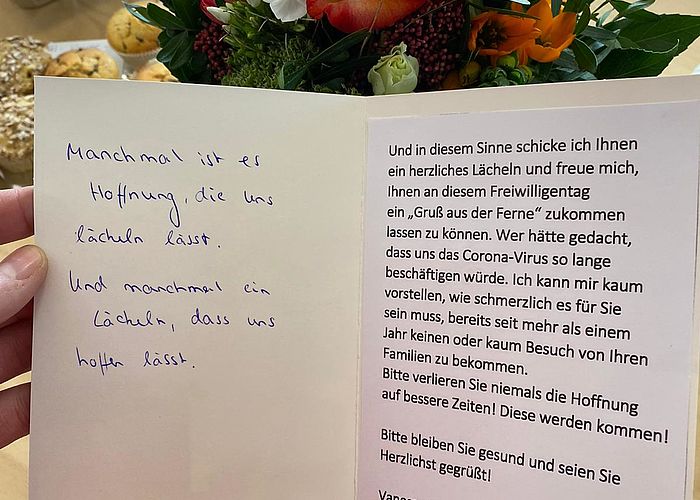 Manchmal ist es
Hoffnung, die uns
lächeln lässt.
Und manchmal ein
Lächeln, dass uns
hoffen lässt.
Und in diesem Sinne schicke ich Ihnen
ein herzliches Lächeln und freue mich,
Ihnen an diesem Freiwilligentag
ein „Gruß aus der Ferne“ zukommen
lassen zu können. Wer hätte gedacht,
dass uns das Corona-Virus so lange
beschäftigen würde. Ich kann mir kaum
vorstellen, wie schmerzlich es für Sie
sein muss, bereits seit mehr als einem
Jahr keinen oder kaum Besuch von Ihren
Familien zu bekommen.
Bitte verlieren Sie niemals die Hoffnung
auf bessere Zeiten! Diese werden kommen!
Bitte bleiben Sie gesund und seien Sie
Herzlichst gegrüßt!